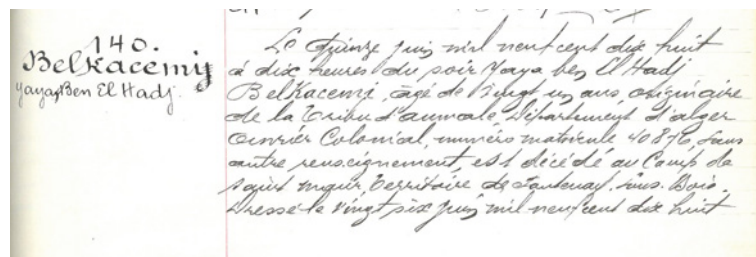 140.
Belkacemi
Yaya Ben El Hadj.
Le Quinze juin mil neuf cent dix huit
à dix heures du soir Yaya ben El Hadj
BelKacemi, âgé de vingt un ans, originaire
de la Tribu d'aumale, Département d'alger
Ouvrier Colonial, numéro matricule 40876, sans
autre renseignement, est décédé au Camp de
saint maur, territoire de Fontenay. sous. Bois.
Dressé le vingt six juin mil neuf cent dix huit